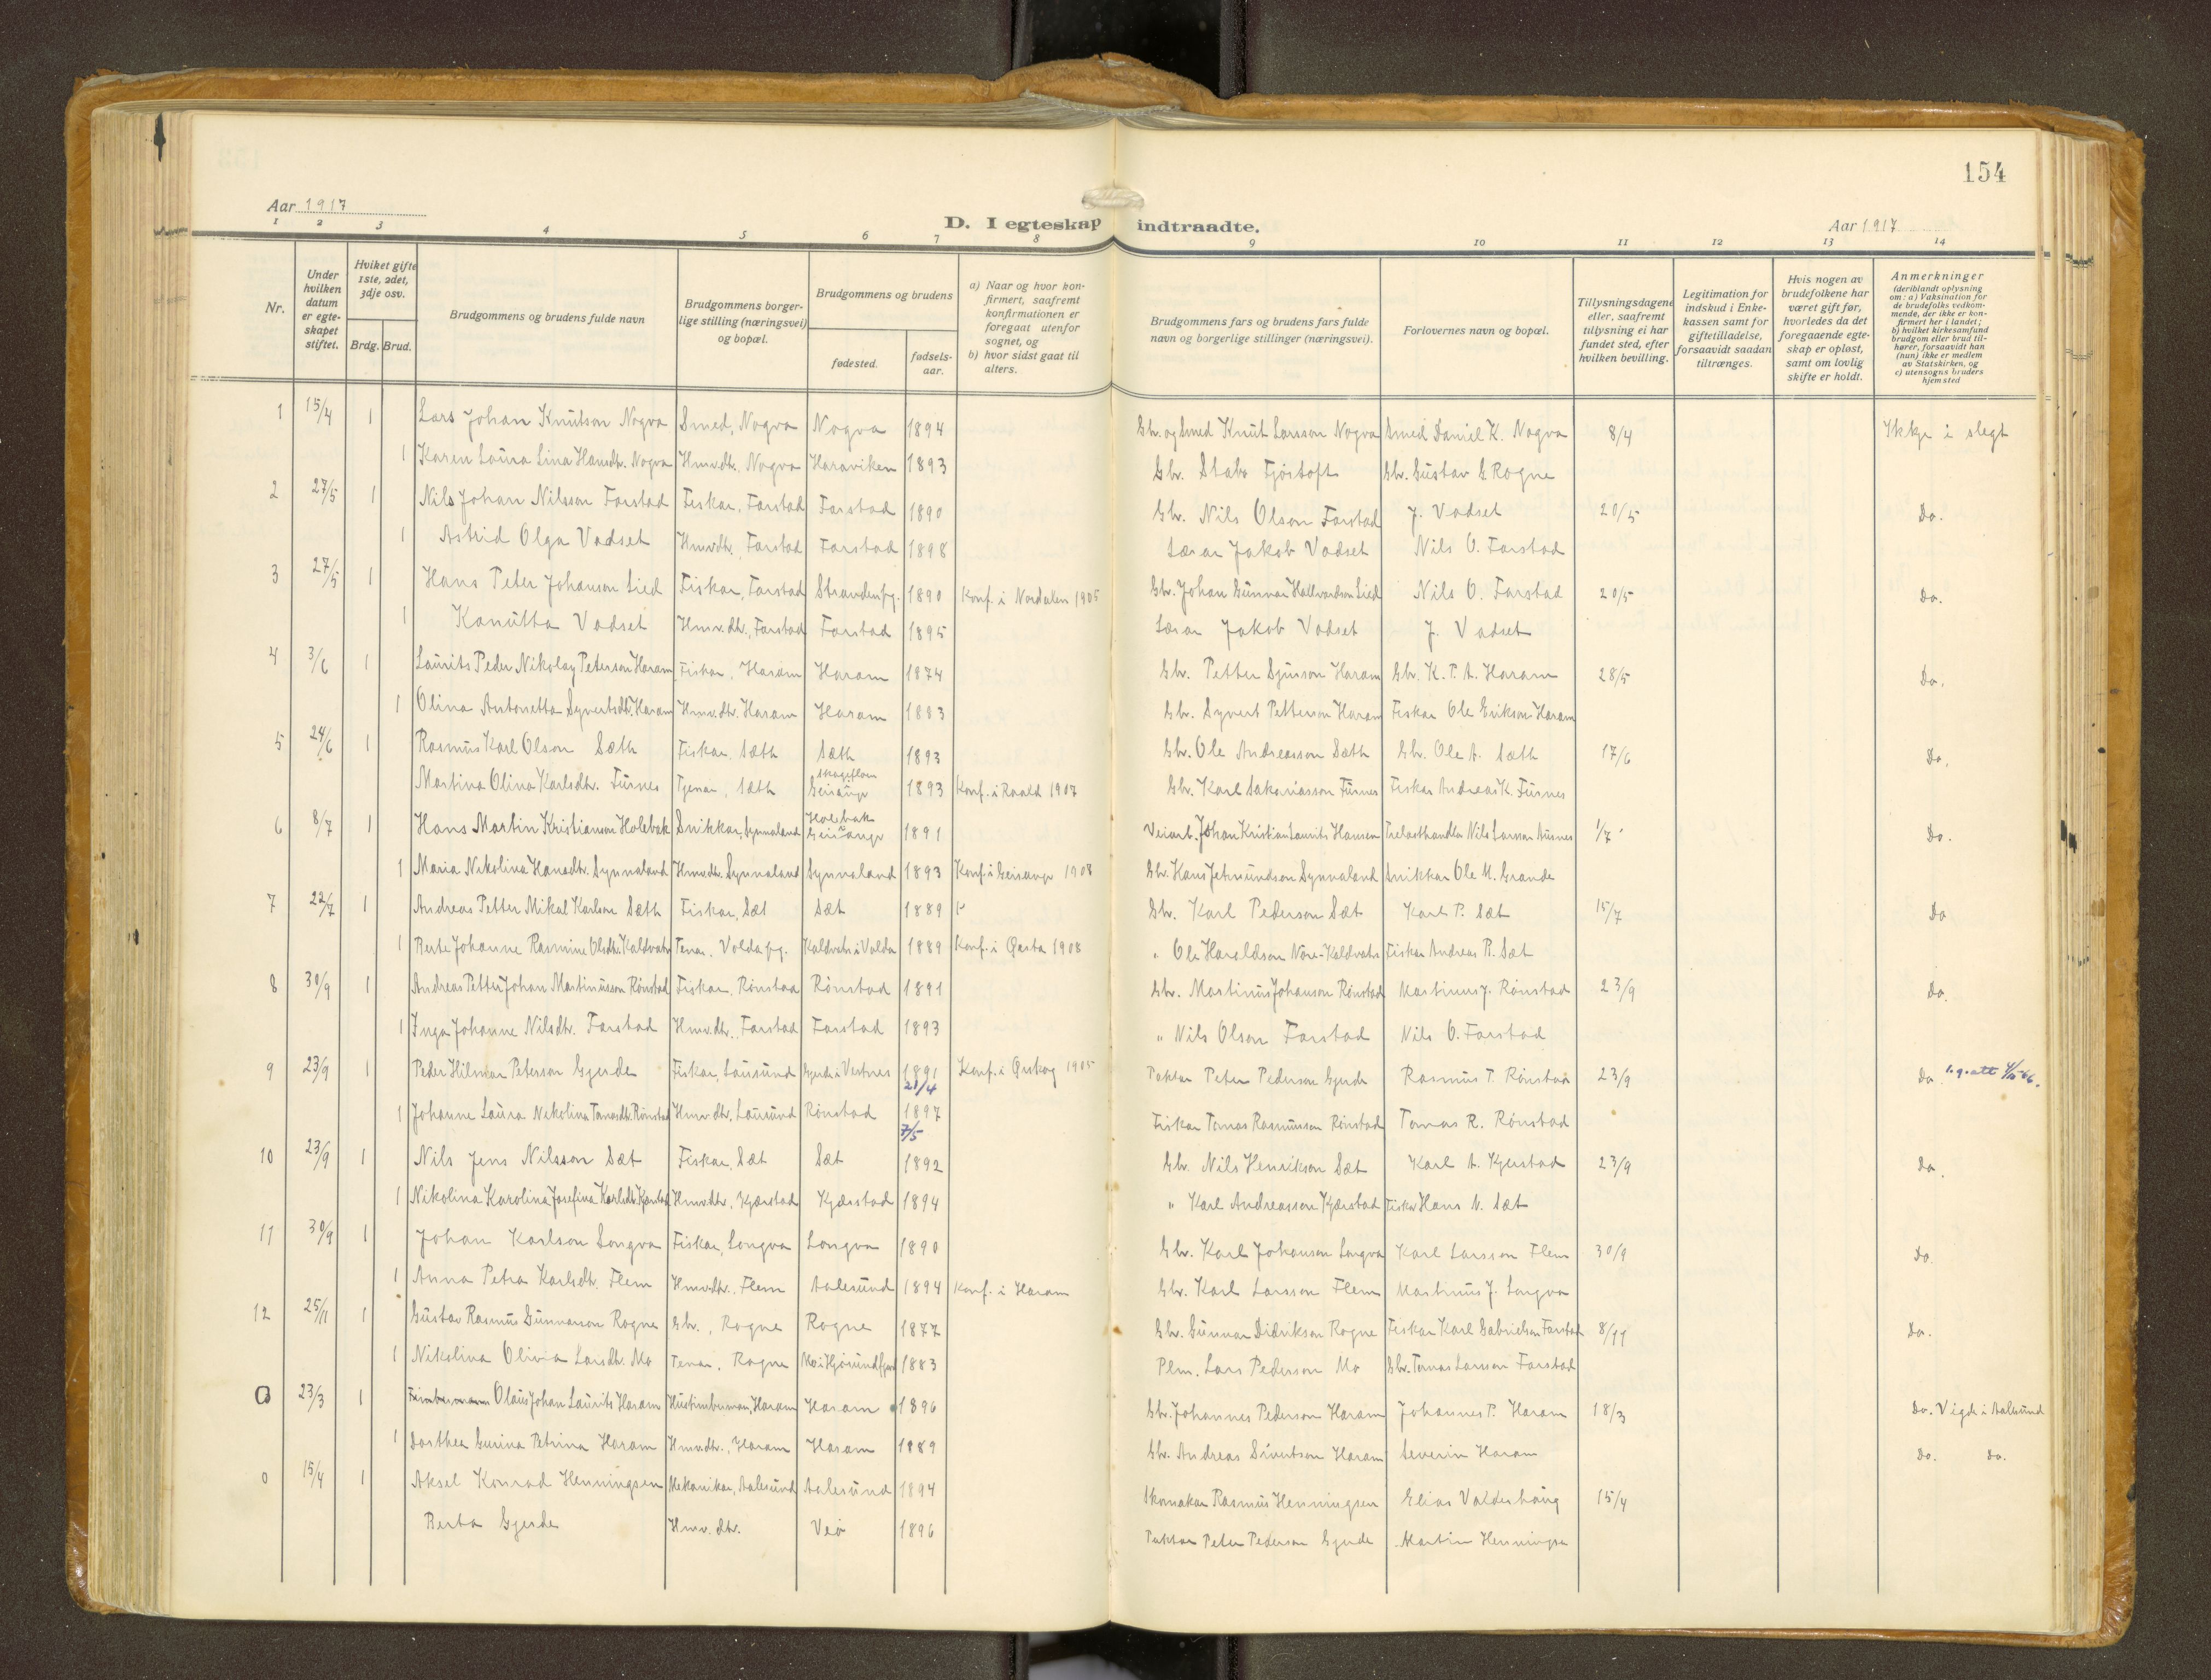 154
Aar 1917
D. I egteskap indtraadte.
Aar 1917
1 2 3 4 5 6 7 8 9 10 11 12 13 14
Nr.
Under hvilken datum er egteskapet stiftet.
Hviket gifte 1ste, 2det, 3dje osv.
Brdg. Brud.
Brudgommens og brudens fulde navn
Brudgommens borgerlige stilling (næringsvei) og bopæl.
Brudgommens og brudens
fødested.
fødselsaar.
a) Naar og hvor konfirmert, saafremt konfirmationen er foregaat utenfor sognet, og
b) hvor sidst gaat til alters.
Brudgommens fars og brudens fars fulde navn og borgerlige stillinger (næringsvei).
Forlovernes navn og bopæl.
Tillysningsdagene eller, saafremt tillysning ei har fundet sted, efter hvilken bevilling.
Legitimation for indskud i Enkekassen samt for giftetilladelse, forsaavidt saadan tiltrænges.
Hvis nogen av brudefolkene har været gift før, hvorledes da det foregaaende egteskap er opløst, samt om lovlig skifte er holdt.
Anmerkninger
(deriblandt oplysning om: a) Vaksination for de brudefolks vedkommende, der ikke er konfirmert her i landet; b) hvilket kirkesamfund brudgom eller brud tilhører, forsaavidt han (hun) ikke er medlem av Statskirken, og c) utensogns bruders hjemsted
1 15/4 1 Lars Johan Knutson Nogva Smed, Nogva Nogva 1894 Gbr. og smed Knut Larsson Nogva Smed Daniel K. Nogva 8/4 Ikkje i slegt
1 Karen Laura Lina Hansdtr. Nogva Hmv.dtr. Nogva Haraviken 1893 Gbr. Fjørtoft Gbr. Gustav G. Rogne
2 27/5 1 Nils Johan Nilsson Farstad Fiskar, Farstad Farstad 1890 Gbr. Nils Olson Farstad J. Vadset 20/5 Do.
1 Astrid Olga Vadset Hmv.dtr., Farstad Farstad 1898 Lærar Jakob Vadset Nils O. Farstad
3 27/5 1 Hans Peter Johanson Lied Fiskar, Farstad Stranden pg. 1890 Konf. i Nordalen 1905 Gbr. Johan Gunnar Hallvardson Lied Nils O. Farstad 20/5 Do.
1 Kanutta Vadset Hmv.dtr., Farstad Farstad 1895 Lærar Jakob Vadset J. Vadset
4 3/6 1 Laurits Peder Nikolay Peterson Haram Fiskar, Haram Haram 1874 Gbr. Petter Sjurson Haram Gbr. K. P. A. Haram 28/5 Do.
1 Olina Antonetta Syvertsdtr. Haram Hmv.dtr. Haram Haram 1883 Gbr. Syvert Petterson Haram Fiskar Ole Erikson Haram
5 24/6 1 Rasmus Karl Olson Sæth Fiskar, Sæth Sæth 1893 Gbr. Ole Andreasson Sæth Gbr. Ole A. Sæth 17/6 Do.
Martina Olina Karlsdtr. Furnes Tjenar, Sæth Skageflaen Geiranger 1893 Konf. i Roald 1907 Gbr. Karl Sakariasson Furnes Fiskar Andreas K. Furnes
6 8/7 1 Hans Martin Kristianson Holebak Snikkar, Synnaland Holebak Geiranger 1891 Veiarb. Johan Kristian Laurits Hansen Trelasthandler Nils Larson Aursnes 1/7 Do.
1 Maria Nikolina Hansdtr. Synnaland Hmv.dtr. Synnaland Synnaland 1893 Konf. i Geiranger 1908 Gbr. Hans Jetmundson Synnaland Snikkar Ole M. Grande
7 22/7 1 Andreas Petter Mikal Karlson Sæth Fiskar, Sæt Sæt 1889 Gbr. Karl Pederson Sæt Karl P. Sæt 15/7 Do
1 Berte Johanne Rasmine Olsdtr. Kaldvatn Tenar. Volda pg. Kaldvatn i Volda 1889 Konf. i Ørsta 1908 " Ole Haraldson Nore-Kaldvatn Fiskar Andreas P. Sæt
8 30/9 1 Andreas Petter Johan Martinusson Rønstad Fiskar, Rønstad Rønstad 1891 Gbr. Martinus Johanson Rønstad Martinus J. Rønstad 23/9 Do.
1 Inga Johanne Nilsdtr. Farstad Hmv.dtr., Farstad Farstad 1893 " Nils Olson Farstad Nils O. Farstad
9 23/9 1 Peder Hilmar Peterson Gjerde Fiskar, Lausund Gjerde i Vestnes 1891 21/4 Konf. i Ørskog 1905 Paktar Peter Pederson Gjerde Rasmus T. Rønstad 23/9 Do.
1 Johanne Laura Nikolina Tomasdtr. Rønstad Hmv.dtr, Lausund Rønstad 1897 7/5 Fiskar Tomas Rasmusson Rønstad Tomas R. Rønstad
10 23/9 1 Nils Jens Nilsson Sæt Fiskar, Sæt Sæt 1892 Gbr. Nils Henrikson Sæt Karl A. Kjerstad 23/9 Do.
1 Nikolina Karolina Josefina Karlsdtr. Kjærstad Hmv.dtr, Kjærstad Kjærstad 1894 " Karl Andreasson Kjærstad Fiskar Hans N. Sæt
11 30/9 1 Johan Karlson Longva Fiskar, Longva Longva 1890 Gbr. Karl Johanson Longva Karl Larsson Flem 30/9 Do.
1 Anna Petra Karlsdtr. Flem Hmv.dtr., Flem Aalesund 1894 Konf. i Haram Gbr. Karl Larsson Flem Martinus J. Longva
12 25/11 1 Gustav Rasmus Gunnarson Rogne Gbr., Rogne Rogne 1877 Gbr. Gunnar Didrikson Rogne Fiskar Karl Gabrielsen Farstad 8/11 Do.
1 Nikolina Oliva Larsdtr. Mo Tenar. Rogne Mo i Hjørundfjord 1883 Plm. Lars Pederson Mo Gbr. Tomas Larsson Farstad
0 23/3 1 Olaus Johan Laurits Haram Hustimberman, Haram Haram 1896 Gbr. Johannes Pederson Haram Johannes P. Haram 18/3 Do. Vigde i Aalesund
1 Dorthea Gurina Petrina Haram Hmv.dtr., Haram Haram 1889 Gbr. Andreas Sivertson Haram Severin Haram Do. Do.
0 15/4 1 Aksel Konrad Henningsen Mekanikar, Aalesund Aalesund 1894 Skomakar Rasmus Henningsen Elias Valderhaug 15/4
Berta Gjerde Hmv. dtr. Veø 1896 Paktar Peter Pederson Gjerde Martin Henningsen